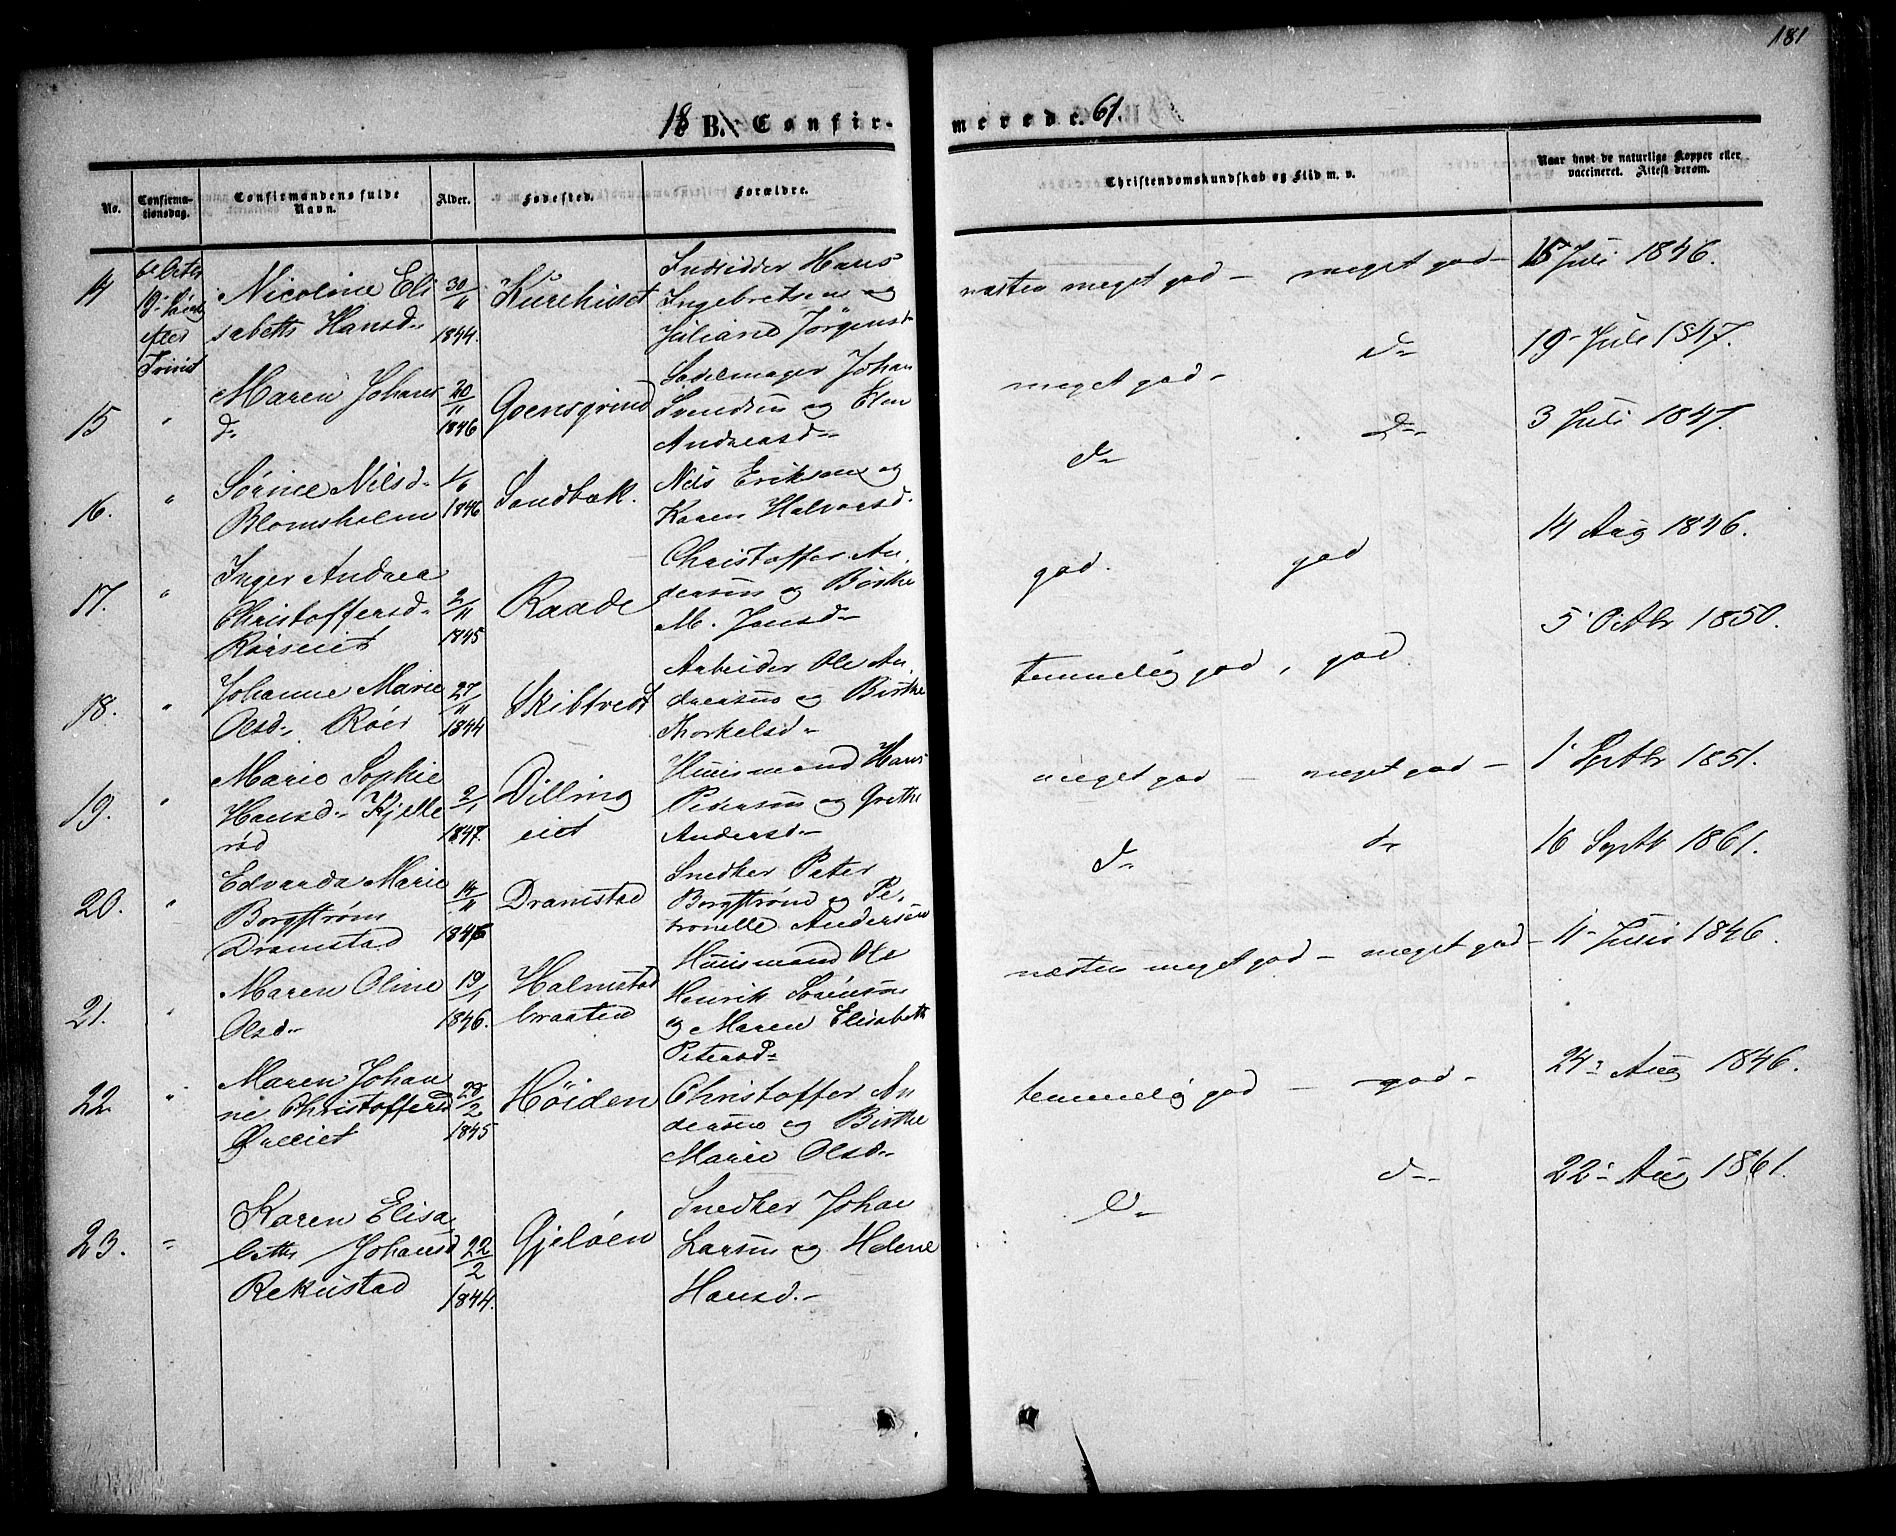 181
18 B. Confirmerede. 61.
No.
Confirmationsdag.
Confirmandens fulde Navn.
Alder.
Fødested.
Forældre.
Christendomskundskab og Flid m. v.
Naar havt de naturlige Kopper eller vaccineret. Attest derom.
14
19. Sønd
efter
Trinit
Nicoline Eli
sabeth Hansd
30/11
1844.
Kurehuset
Inderidder Hans
Ingebretsen og
Juliane Jørgensd
næsten meget god – meget god –
15 Juli 1846.
15
"
Maren Johans
d
20/11
1846
Goensgrind
Sadelmager Johan
Svendsen og Elen
Andreasd
meget god –
d
19 Juli 1847.
16.
"
Sørine Nilsd
Blomsholm
1/6
1846
Sandbæk.
Nils Eriksen og
Karen Halvorsd.
d
d
3 Juli 1847.
17.
"
Inger Andrea
Christoffersd
Rørseiet
2/11
1845
Raade
Christoffer An
dersen og Birthe
M. Jensd
god.
god
14 Aug 1846.
18.
"
Johanne Marie
Olsd. Røer
27/11
1844
Skibtvedt
Arbeider Ole An
dreasen og Birthe
Thorkelsd
temmelig god, god.
5 Octbr 1850.
19.
"
Marie Sophie
Hansd Kjelle
rød
2/1
1847.
Dilling
eiet
Huusmand Hans
Pedersen og Grethe
Andersd
meget god – meget god –
1 Septbr 1851.
20.
"
Edvarda Marie
Borgstrøm
Dramstad
14/11
1846
Dramstad
Snedker Peter
Borgstrøm og Pe
tronelle Andersen
d
d
16 Septbr 1861.
21.
"
Maren Oline
Olsd
19/1
1846.
Halmstad
braaten
Huusmand Ole
Henrik Sørensen
og Maren Elisabeth
Petersd
næsten meget god – meget god –
11 Juli 1846.
22
"
Maren Johan
ne Christoffersd
28/2
1845
Høiden
Christoffer An
dersen og Birthe
Marie Olsd
temmelig god – god –
24 Aug 1846.
23.
"
Karen Elisa
beth Johansd
Rekustad
22/2
1844.
Gjeløen
Snedker Johan
Larsen og Helene
Hansd.
d
d
22 Aug 1861.